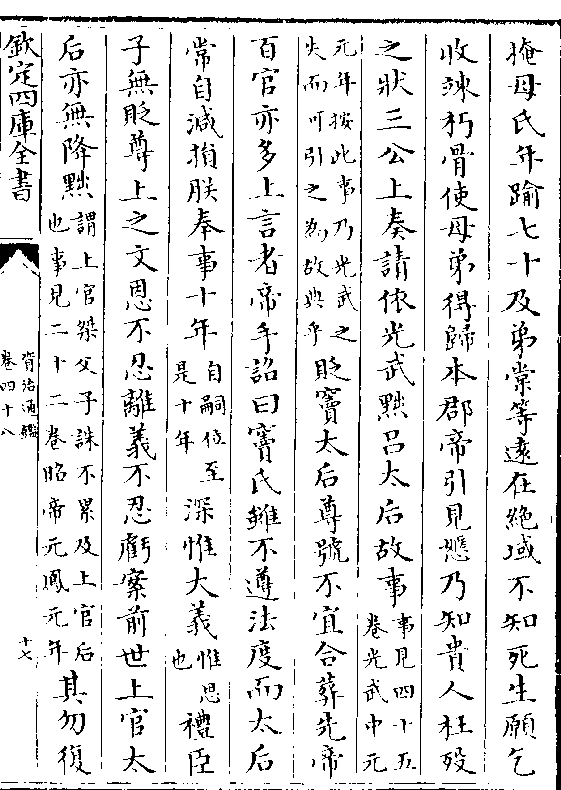 掩母氏年踰七十及弟棠等遠在絶域不知死生願乞
收竦朽骨使母弟得歸本郡帝引見愍乃知貴人枉殁
之狀三公上奏請依光武黜呂太后故事事見四十五卷光武中元
元年按此事乃光武之失而可引之為故典乎貶竇太后尊號不宜合葬先帝
百官亦多上言者帝手詔曰竇氏雖不遵法度而太后
常自減損朕奉事十年自嗣位至是十年深惟大義惟思也禮臣
子無貶尊上之文恩不忍離義不忍虧案前世上官太
后亦無降黜謂上官桀父子誅不累及上官后也事見二十二卷昭帝元鳳元年其勿復
欽定四庫全書
資治通鑑
卷四十八
十七